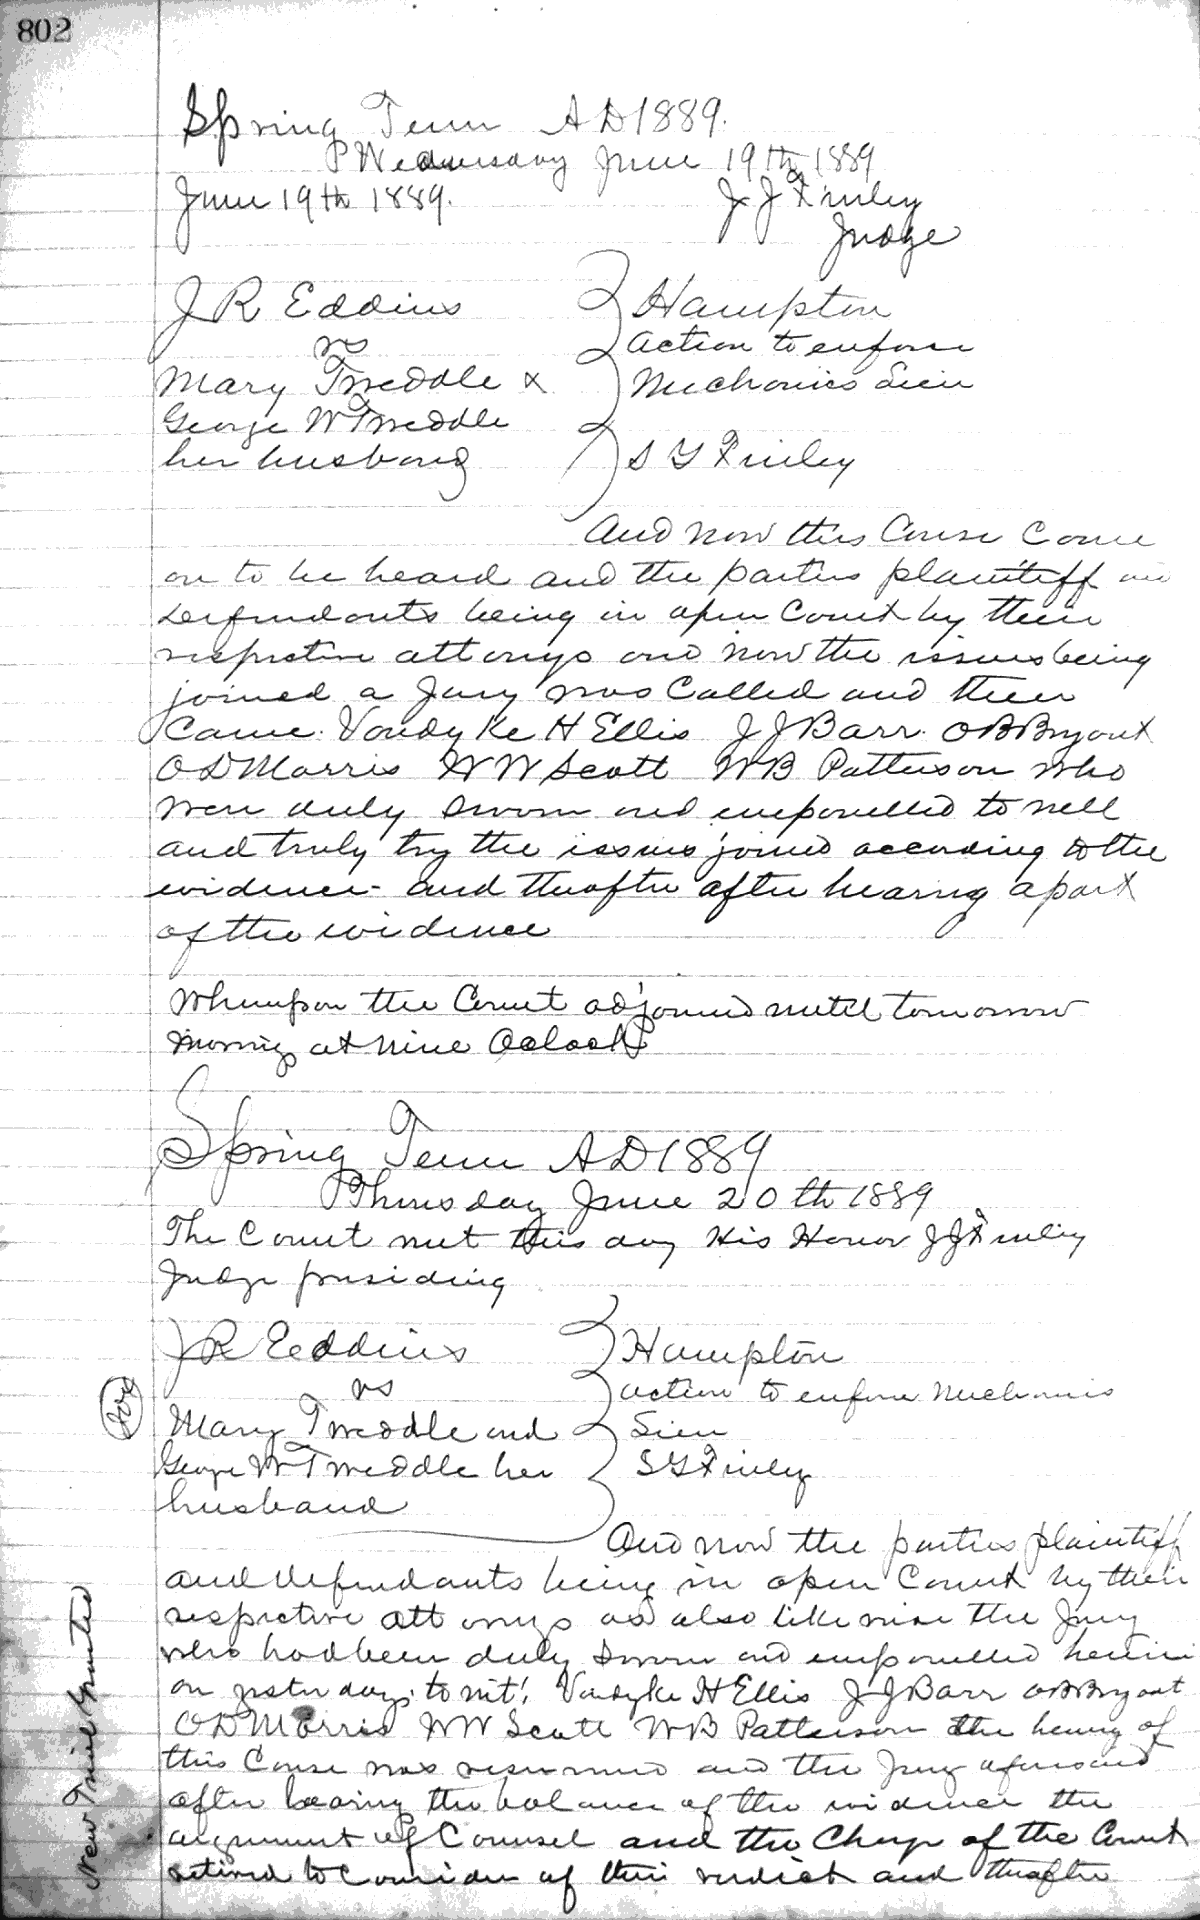 802
Spring Term A D 1889.
Wednesday June 19th 1889
June 19th 1889.
J J Finley
Judge
J R Eddins
vs
Mary Tweddle &
George W Tweddle
her husband
Hampton
action to enforce
Mechanics Lien
S Y Finley
And now this Cause Come
on to be heard and the parties plaintiff and
defendants being in open Court by their
respective attorneys and now the issues being
joined a Jury was Called and then
Came. Vandyke H Ellis J J Barr. O B Bryant
O D Morris W W Scott W B Patterson who
were duly sworn and empanelled to well
and truly try the issues joined according to the
evidence - and thereafter after hearing a part
of the evidence
Whereupon the Court adjourned until tomorrow
morning at nine Oclock
Spring Term A D 1889
Thursday June 20th 1889
The Court met this day His Honor J J Finley
Judge presiding
J R Eddins
vs
Mary Tweddle and
George W Tweddle her
husband
Hampton
action to enforce Mechanics
Lien
S Y Finley
And now the parties plaintiff
and defendants being in open Court by their
respective attorneys as also likewise the Jury
who had been duly sworn and empanelled herein
on yesterday. to wit: Vandyke H Ellis J J Barr O B Bryant
O D Morris W W Scott W B Patterson the hearing of
this Cause was resumed and the Jury aforesaid
after hearing the balance of the evidence the
argument of Counsel and the Charge of the Court
retired to Consider of their verdict and thereafter
New Trial Granted